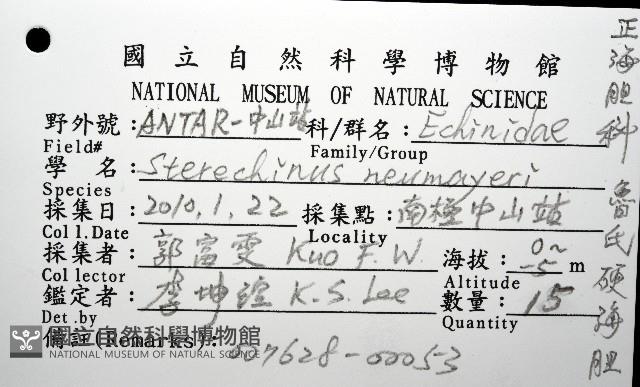 國立自然科學博物館
NATIONAL MUSEUM OF NATURAL SCIENCE
野外號: ANTAR-中山站 科/群名: Echinidae
Field# Family/Group
學名: Sterechinus neumayeri
Species
採集日: 2010.1.22 採集點: 南極中山站
Coll.Date Locality
採集者: 郭富雯 Kuo F.W. 海拔: 0~-5 m
Collector Altitude
鑑定者: 李坤瑄 K.S. Lee 數量: 15
Det.by Quantity
備註(Remarks): 007628-00053
國立自然科學博物館
NATIONAL MUSEUM OF NATURAL SCIENCE
正海胆科 魯氏硬海胆